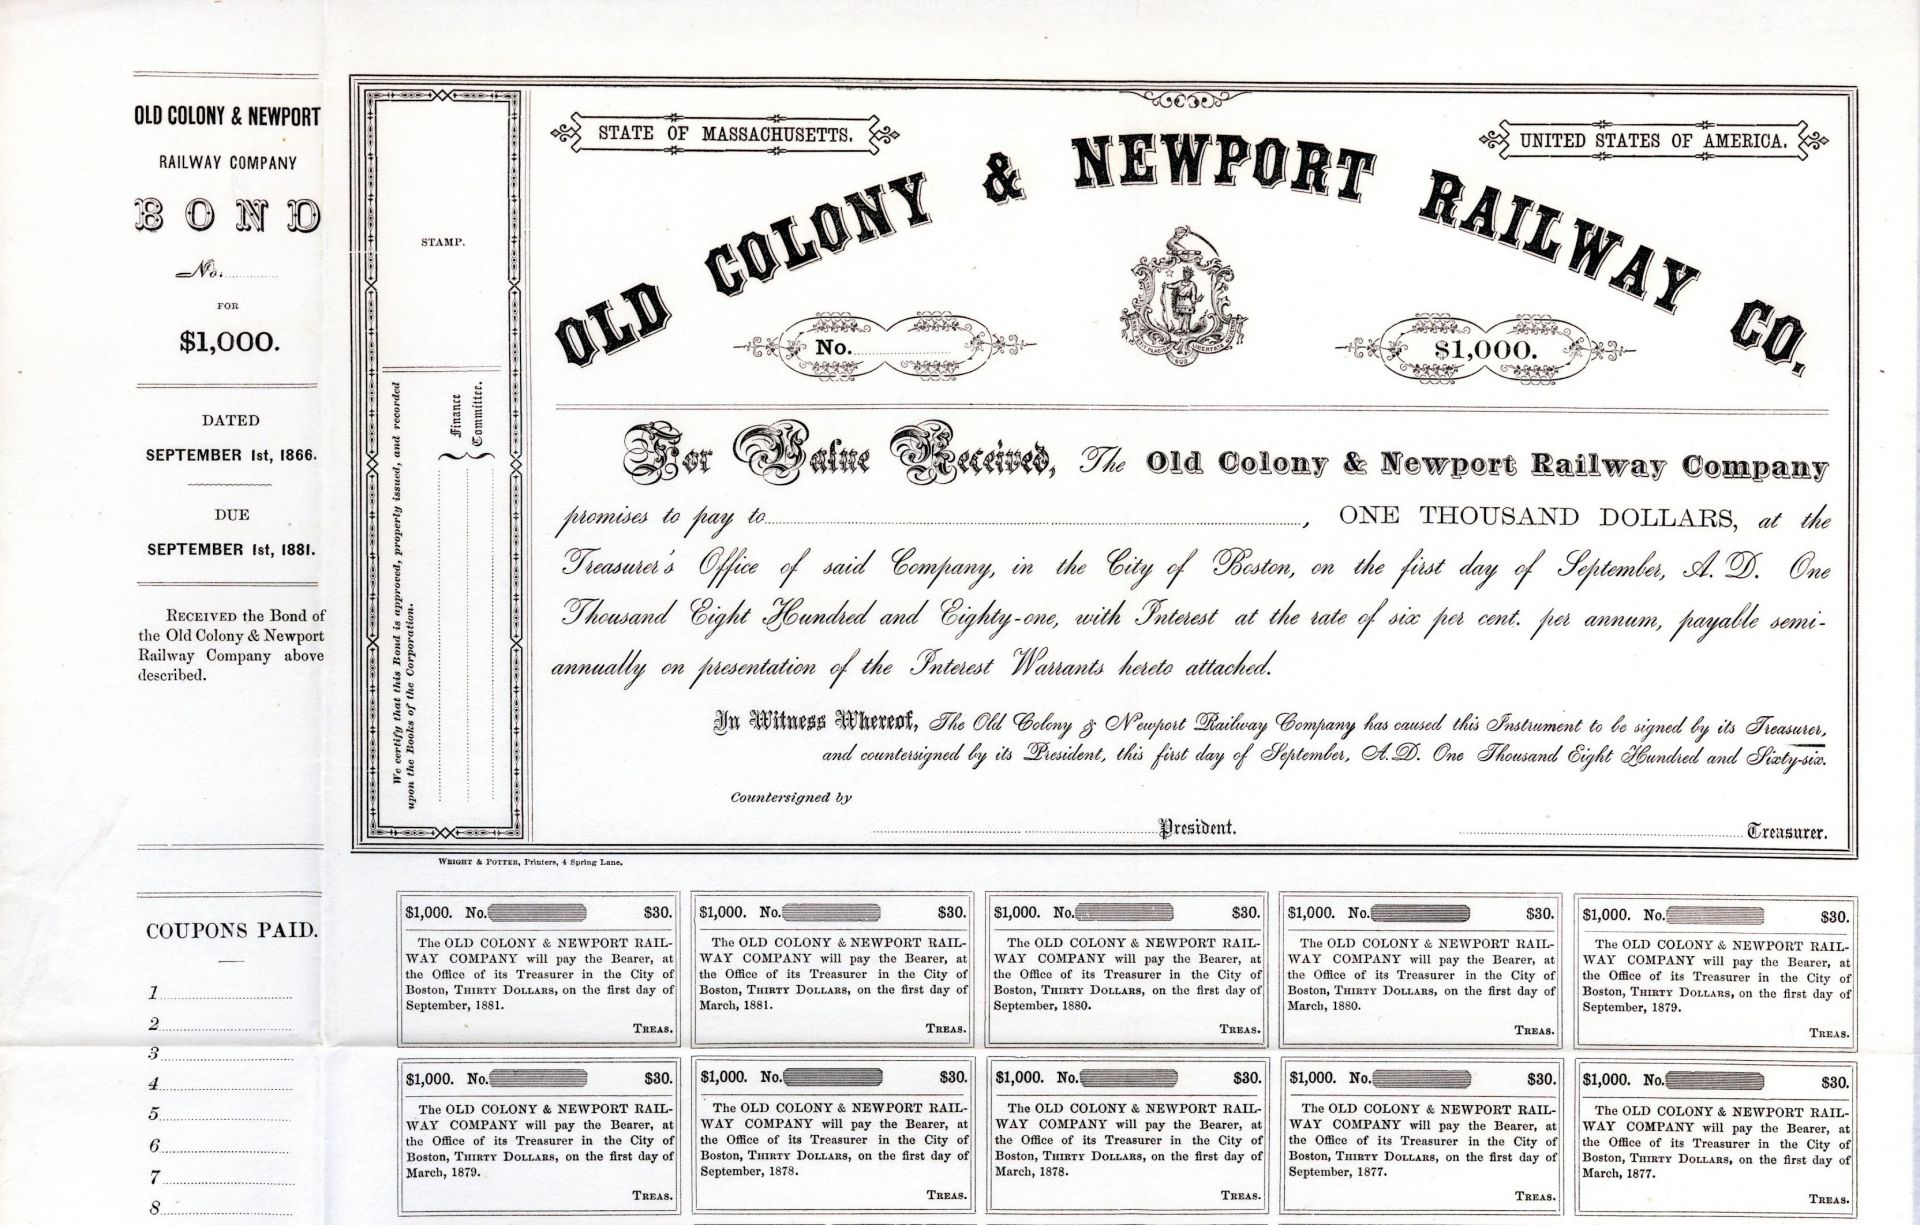 OLD COLONY & NEWPORT
RAILWAY COMPANY
BOND
No.
FOR
$1,000.
DATED
SEPTEMBER 1st, 1866.
DUE
SEPTEMBER 1st, 1881.
RECEIVED the Bond of
the Old Colony & Newport
Railway Company above
described.
STAMP.
We certify that this Bond is approved, properly issued, and recorded
upon the Books of the Corporation.
Finance
Committee.
STATE OF MASSACHUSETTS.
UNITED STATES OF AMERICA.
OLD COLONY & NEWPORT RAILWAY CO.
No.
$1,000.
For Value Received, The Old Colony & Newport Railway Company
promises to pay to , ONE THOUSAND DOLLARS, at the
Treasurer's Office of said Company, in the City of Boston, on the first day of September, A. D. One
Thousand Eight Hundred and Eighty-one, with Interest at the rate of six per cent. per annum, payable semi-
annually on presentation of the Interest Warrants hereto attached.
In Witness Whereof, The Old Colony & Newport Railway Company has caused this Instrument to be signed by its Treasurer,
and countersigned by its President, this first day of September, A. D. One Thousand Eight Hundred and Sixty-six.
Countersigned by
President.
Treasurer.
WRIGHT & POTTER, Printers, 4 Spring Lane.
COUPONS PAID.
1
2
3
4
5
6
7
8
$1,000. No. $30.
The OLD COLONY & NEWPORT RAIL-
WAY COMPANY will pay the Bearer, at
the Office of its Treasurer in the City of
Boston, THIRTY DOLLARS, on the first day of
September, 1881.
TREAS.
$1,000. No. $30.
The OLD COLONY & NEWPORT RAIL-
WAY COMPANY will pay the Bearer, at
the Office of its Treasurer in the City of
Boston, THIRTY DOLLARS, on the first day of
March, 1881.
TREAS.
$1,000. No. $30.
The OLD COLONY & NEWPORT RAIL-
WAY COMPANY will pay the Bearer, at
the Office of its Treasurer in the City of
Boston, THIRTY DOLLARS, on the first day of
September, 1880.
TREAS.
$1,000. No. $30.
The OLD COLONY & NEWPORT RAIL-
WAY COMPANY will pay the Bearer, at
the Office of its Treasurer in the City of
Boston, THIRTY DOLLARS, on the first day of
March, 1880.
TREAS.
$1,000. No. $30.
The OLD COLONY & NEWPORT RAIL-
WAY COMPANY will pay the Bearer, at
the Office of its Treasurer in the City of
Boston, THIRTY DOLLARS, on the first day of
September, 1879.
TREAS.
$1,000. No. $30.
The OLD COLONY & NEWPORT RAIL-
WAY COMPANY will pay the Bearer, at
the Office of its Treasurer in the City of
Boston, THIRTY DOLLARS, on the first day of
March, 1879.
TREAS.
$1,000. No. $30.
The OLD COLONY & NEWPORT RAIL-
WAY COMPANY will pay the Bearer, at
the Office of its Treasurer in the City of
Boston, THIRTY DOLLARS, on the first day of
September, 1878.
TREAS.
$1,000. No. $30.
The OLD COLONY & NEWPORT RAIL-
WAY COMPANY will pay the Bearer, at
the Office of its Treasurer in the City of
Boston, THIRTY DOLLARS, on the first day of
March, 1878.
TREAS.
$1,000. No. $30.
The OLD COLONY & NEWPORT RAIL-
WAY COMPANY will pay the Bearer, at
the Office of its Treasurer in the City of
Boston, THIRTY DOLLARS, on the first day of
September, 1877.
TREAS.
$1,000. No. $30.
The OLD COLONY & NEWPORT RAIL-
WAY COMPANY will pay the Bearer, at
the Office of its Treasurer in the City of
Boston, THIRTY DOLLARS, on the first day of
March, 1877.
TREAS.